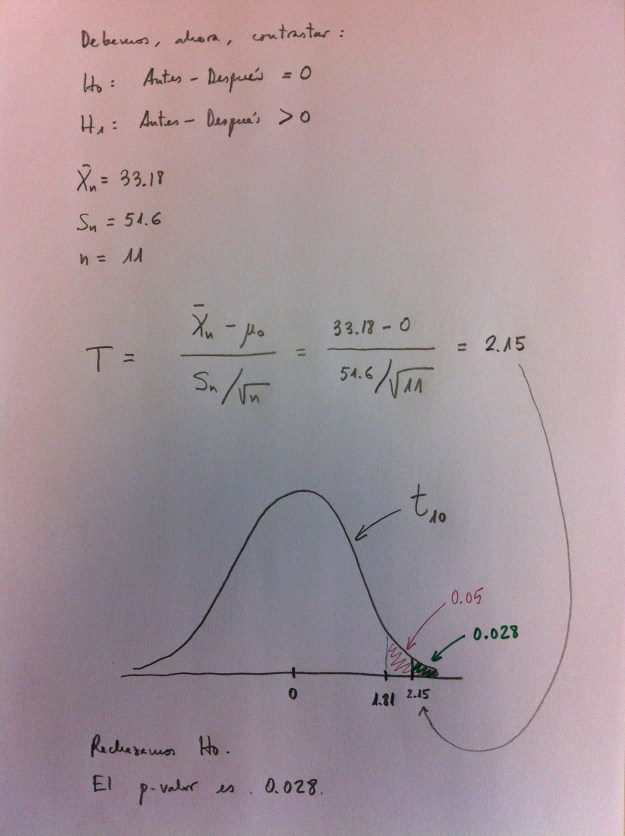 Debemos, ahora, contrastar:
H₀: Antes - Después = 0
H₁: Antes - Después > 0
X̄ₙ = 33.18
Sₙ = 51.6
n = 11
T = (X̄ₙ - μ₀) / (Sₙ/√n) = (33.18 - 0) / (51.6/√11) = 2.15
t₁₀
0.05
0.028
0 1.81 2.15
Rechazamos H₀.
El p-valor es 0.028.